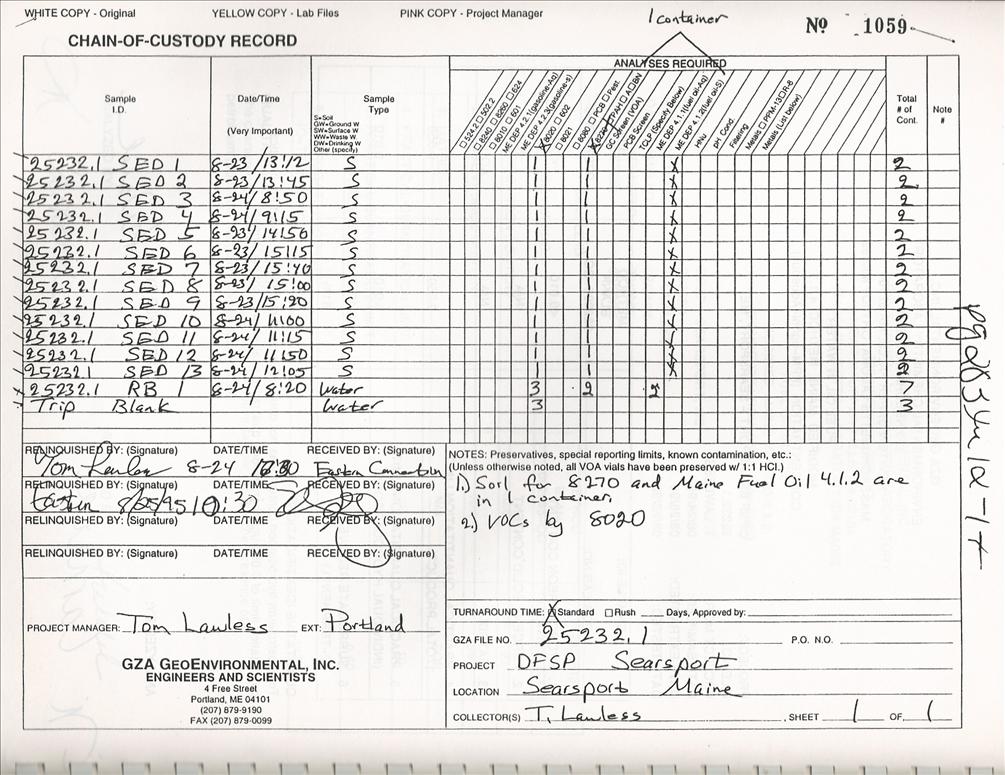 WHITE COPY - Original YELLOW COPY - Lab Files PINK COPY - Project Manager 1 container Nº 1059
CHAIN-OF-CUSTODY RECORD
ANALYSES REQUIRED
Sample I.D. Date/Time (Very Important) Sample Type
S=Soil
GW=Ground W
SW=Surface W
WW=Waste W
DW=Drinking W
Other (specify)
☐ 524.2 ☐ 502.2
☐ 8240 ☐ 8260 ☐ 624
☐ 8010 ☐ 601
ME DEP 4.2.1(gasoline-Aq)
ME DEP 4.2.3(gasoline-s)
8020 ☐ 602
☐ 8021
☐ 8080 ☐ PCB ☐ Pest.
8270 ☐ PAH ☐ A ☐ BN
GC Screen (VOA)
PCB Screen
TCLP (Specify Below)
ME DEP 4.1.1(fuel oil-Aq)
ME DEP 4.1.2(fuel oil-S)
HNU
pH Cond.
Filtering
Metals ☐ PPM-13 ☐ R-8
Metals (List below)
Total # of Cont. Note #
25232.1 SED 1 8-23 / 13:12 S 1 1 X 2
25232.1 SED 2 8-23 / 13:45 S 1 1 X 2
25232.1 SED 3 8-24 / 8:50 S 1 1 X 2
25232.1 SED 4 8-24 / 9:15 S 1 1 X 2
25232.1 SED 5 8-23 / 14:50 S 1 1 X 2
25232.1 SED 6 8-23 / 15:15 S 1 1 X 2
25232.1 SED 7 8-23 / 15:40 S 1 1 X 2
25232.1 SED 8 8-23 / 15:00 S 1 1 X 2
25232.1 SED 9 8-23 / 15:20 S 1 1 X 2
25232.1 SED 10 8-24 / 11:00 S 1 1 X 2
25232.1 SED 11 8-24 / 11:15 S 1 1 X 2
25232.1 SED 12 8-24 / 11:50 S 1 1 X 2
25232.1 SED 13 8-24 / 12:05 S 1 1 X 2
25232.1 RB 1 8-24 / 8:20 Water 3 2 2 7
Trip Blank Water 3 3
RELINQUISHED BY: (Signature) DATE/TIME RECEIVED BY: (Signature)
8-24 Eastern Connection
RELINQUISHED BY: (Signature) DATE/TIME RECEIVED BY: (Signature)
Eastern 8/25/95 10:30
RELINQUISHED BY: (Signature) DATE/TIME RECEIVED BY: (Signature)
RELINQUISHED BY: (Signature) DATE/TIME RECEIVED BY: (Signature)
NOTES: Preservatives, special reporting limits, known contamination, etc.:
(Unless otherwise noted, all VOA vials have been preserved w/ 1:1 HCl.)
1.) Soil for 8270 and Maine Fuel Oil 4.1.2 are
in 1 container.
2.) VOCs by 8020
PROJECT MANAGER: Tom Lawless EXT: Portland
GZA GEOENVIRONMENTAL, INC.
ENGINEERS AND SCIENTISTS
4 Free Street
Portland, ME 04101
(207) 879-9190
FAX (207) 879-0099
TURNAROUND TIME: ☒ Standard ☐ Rush ____ Days, Approved by:
GZA FILE NO. 25232.1 P.O. NO.
PROJECT DFSP Searsport
LOCATION Searsport Maine
COLLECTOR(S) T. Lawless , SHEET 1 OF 1